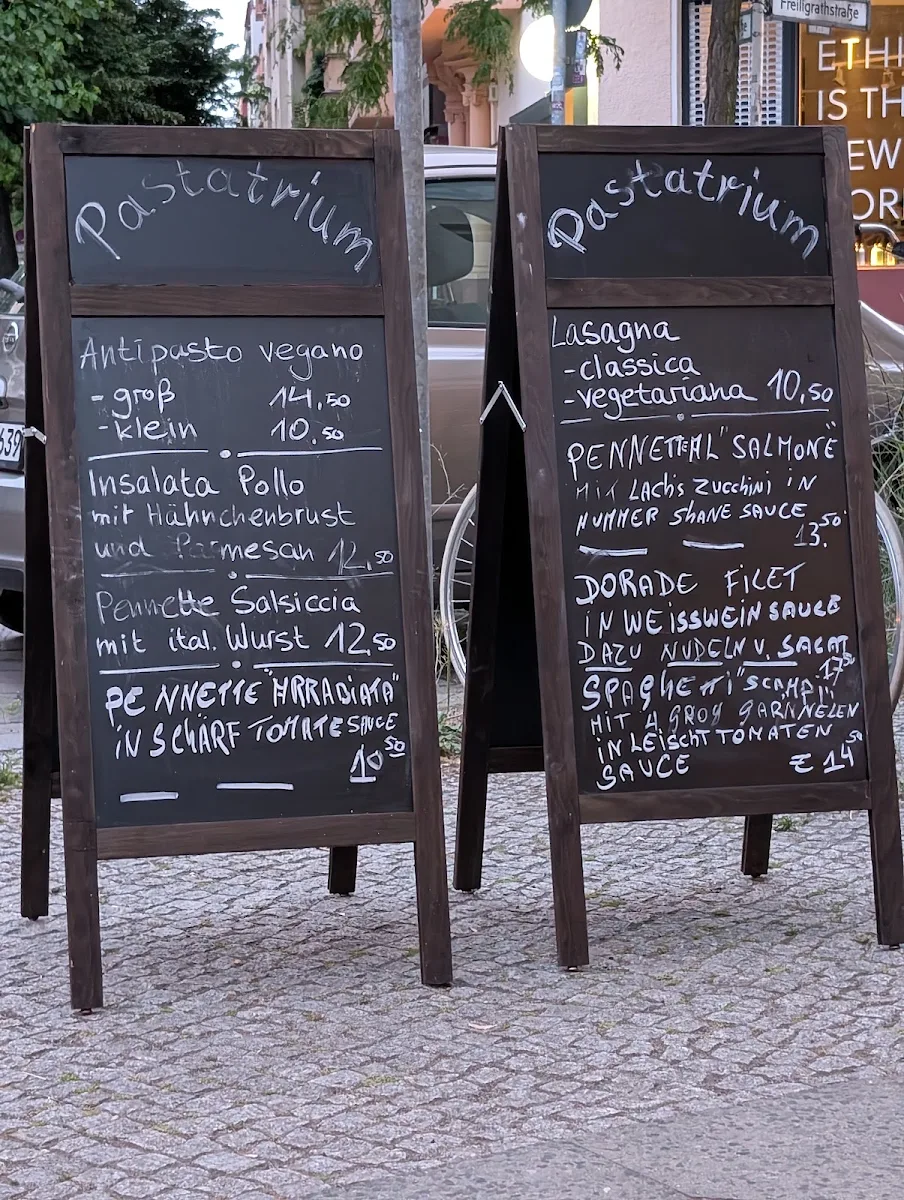 Freiligrathstraße
ETHI
IS TH
EW
ORI
639
Pastatrium
Antipasto vegano
- groß 14,50
- klein 10,50
Insalata Pollo
mit Hähnchenbrust
und Parmesan 12,50
Pennette Salsiccia
mit ital. Wurst 12,50
PENNETTE "ARRADIATA"
IN SCHÄRF TOMATE SAUCE
10 50
Pastatrium
Lasagna
- classica
- vegetariana 10,50
PENNETTE AL "SALMONE"
MIT LACHS ZUCCHINI IN
HUMMER SHANE SAUCE
13.50
DORADE FILET
IN WEISSWEIN SAUCE
DAZU NUDELN U. SALAT
17 50
SPAGHETTI "SCAMPI"
MIT 4 GROß GARNNELEN
IN LEISCHT TOMATEN
SAUCE € 14 50